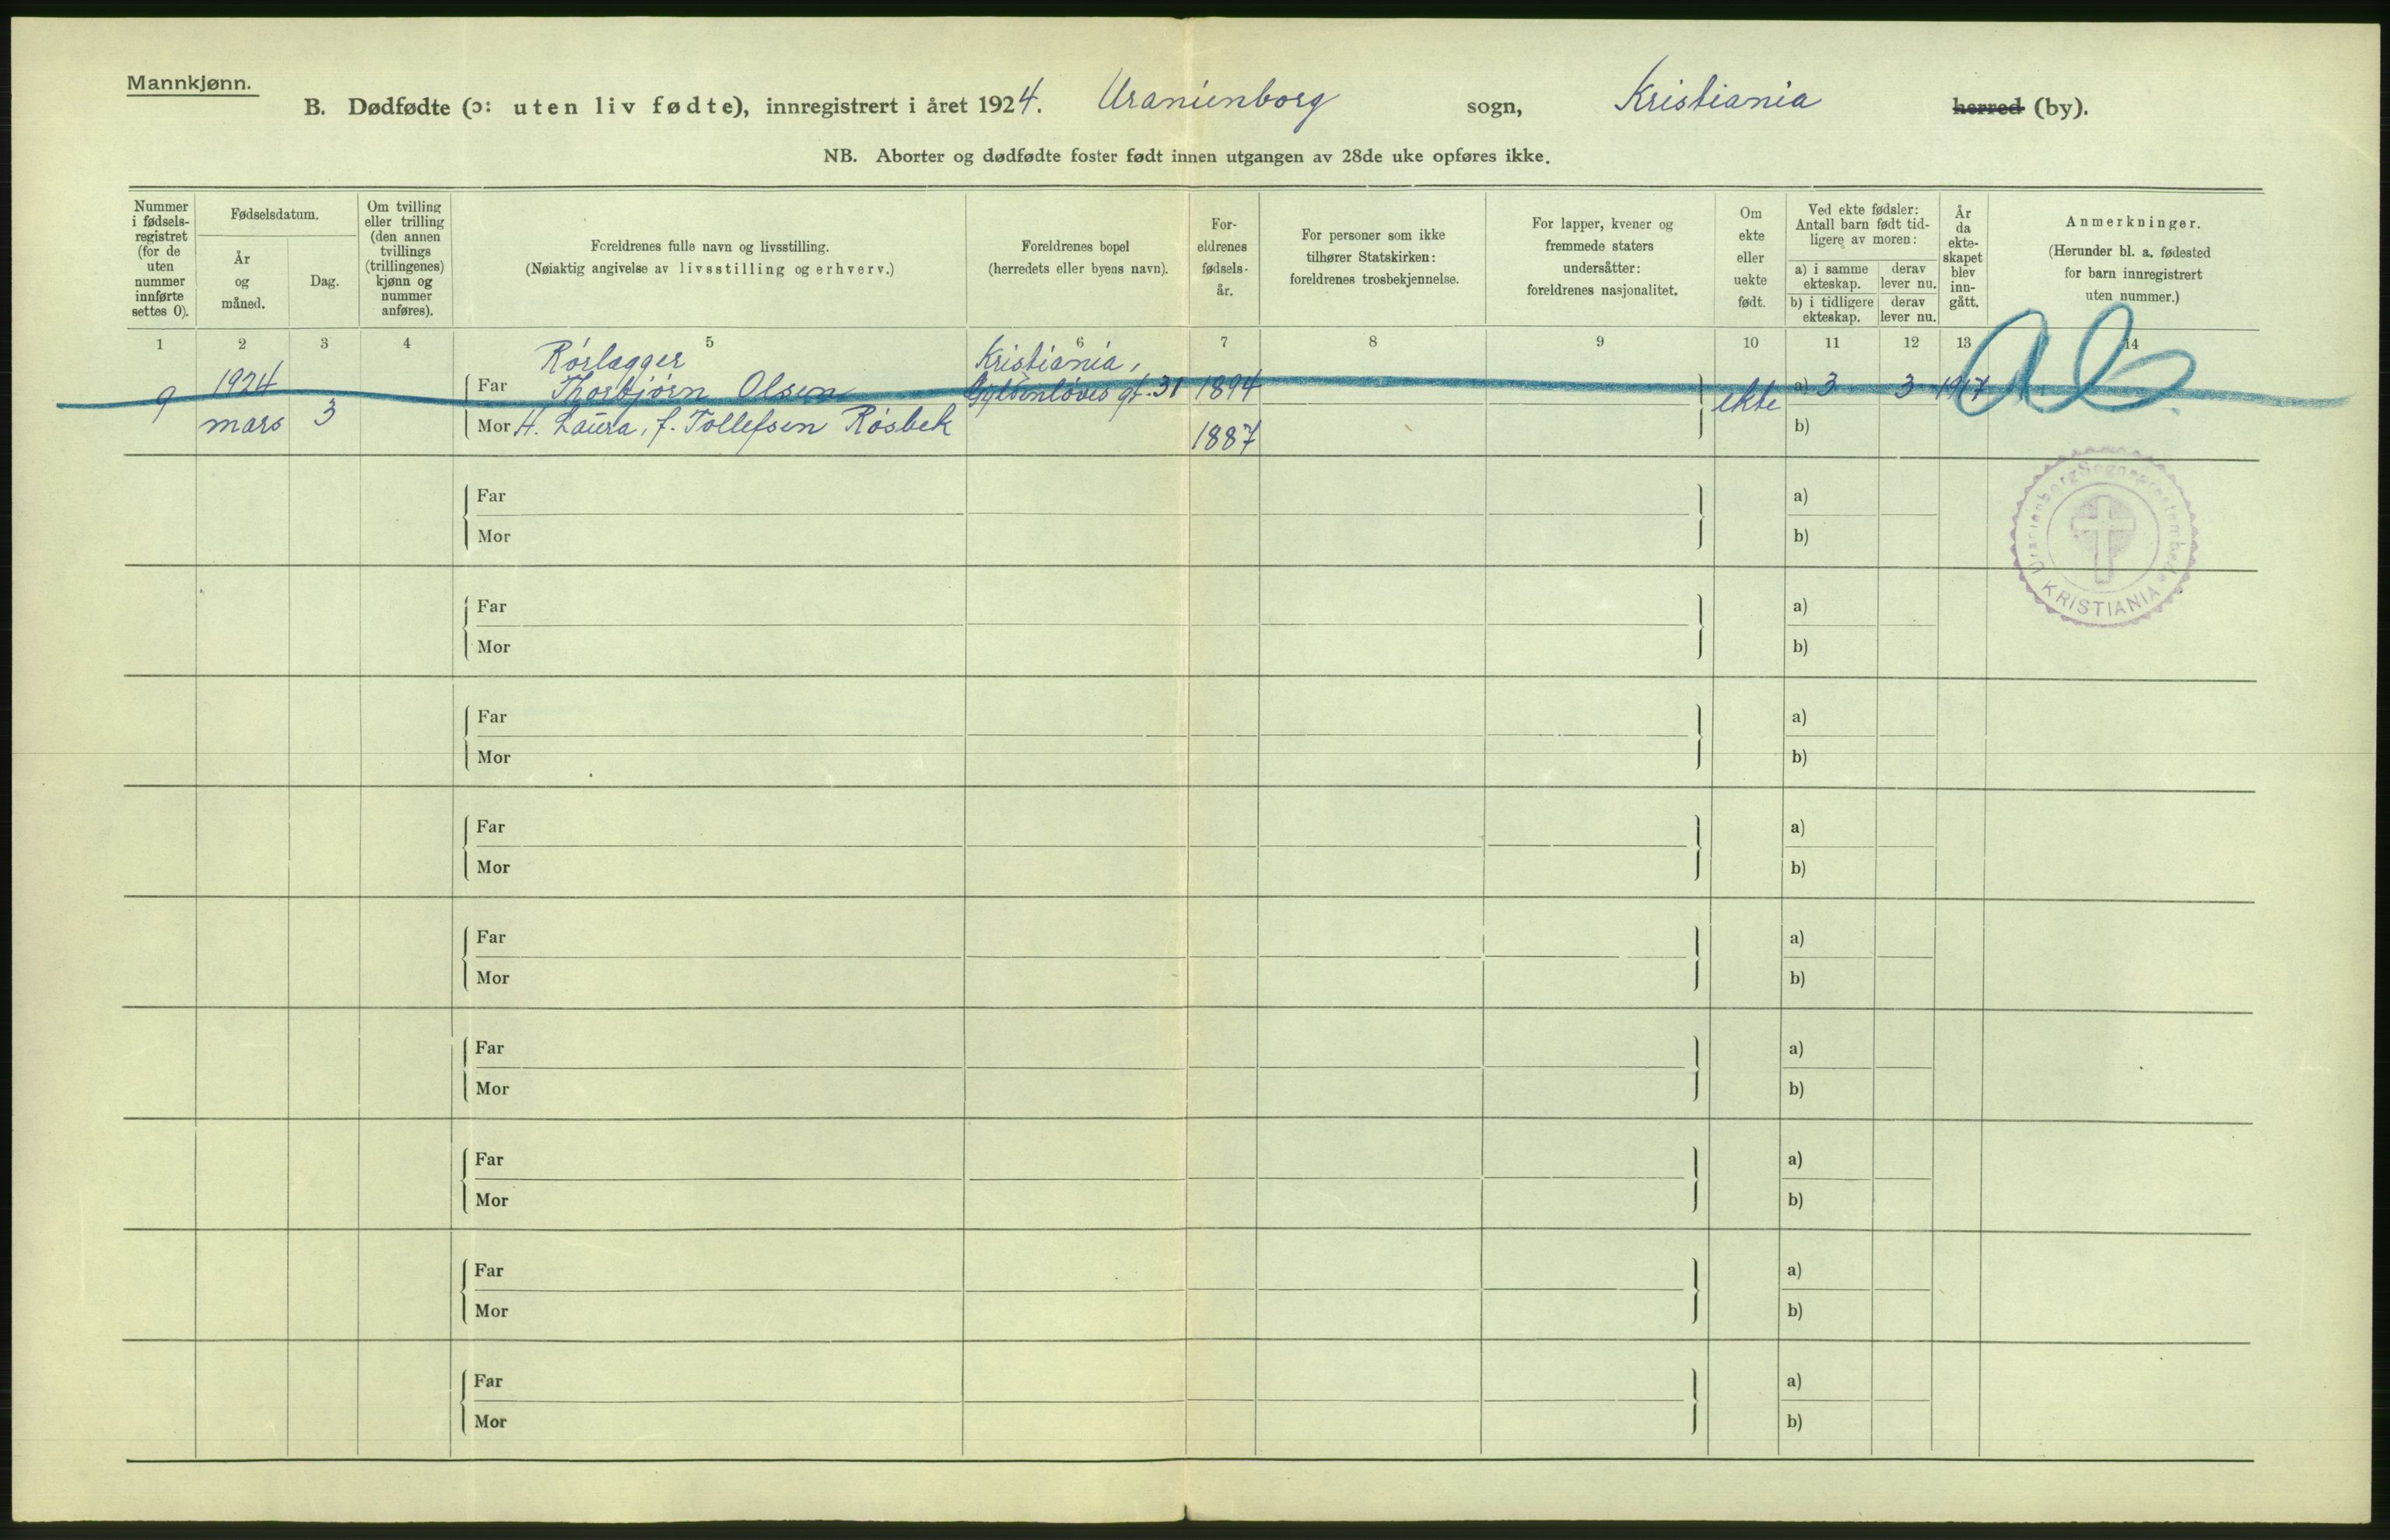 Mannkjønn.
B. Dødfødte (ɔ: uten liv fødte), innregistrert i året 1924. Uranienborg sogn, Kristiania herred (by).
NB. Aborter og dødfødte foster født innen utgangen av 28de uke opføres ikke.
Nummer i fødsels-registret (for de uten nummer innførte settes 0).
Fødselsdatum.
År og måned.
Dag.
Om tvilling eller trilling (den annen tvillings (trillingenes) kjønn og nummer anføres).
Foreldrenes fulle navn og livsstilling.
(Nøiaktig angivelse av livsstilling og erhverv.)
Foreldrenes bopel
(herredets eller byens navn).
For-eldrenes fødsels-år.
For personer som ikke tilhører Statskirken: foreldrenes trosbekjennelse.
For lapper, kvener og fremmede staters undersåtter: foreldrenes nasjonalitet.
Om ekte eller uekte født.
Ved ekte fødsler: Antall barn født tid-ligere av moren:
a) i samme ekteskap.
derav lever nu.
b) i tidligere ekteskap.
derav lever nu.
År da ekte-skapet blev inn-gått.
Anmerkninger.
(Herunder bl. a. fødested for barn innregistrert uten nummer.)
1 2 3 4 5 6 7 8 9 10 11 12 13 14
Rørlægger Kristiania,
9 1924 mars 3 Far Thorbjørn Olsen Gyldenløves gt. 31 1894 ekte a) 3 3 1917
Mor H. Laura, f. Tollefsen Røsbek 1887 b)
Far a)
Mor b)
Far a)
Mor b)
Far a)
Mor b)
Far a)
Mor b)
Far a)
Mor b)
Far a)
Mor b)
Far a)
Mor b)
Far a)
Mor b)
Far a)
Mor b)
Uranienborg Sogneprestembede
KRISTIANIA